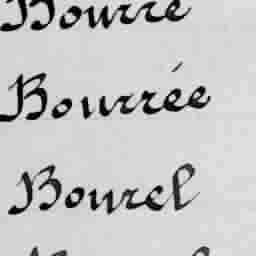 Bourre
Bourrée
Bourel